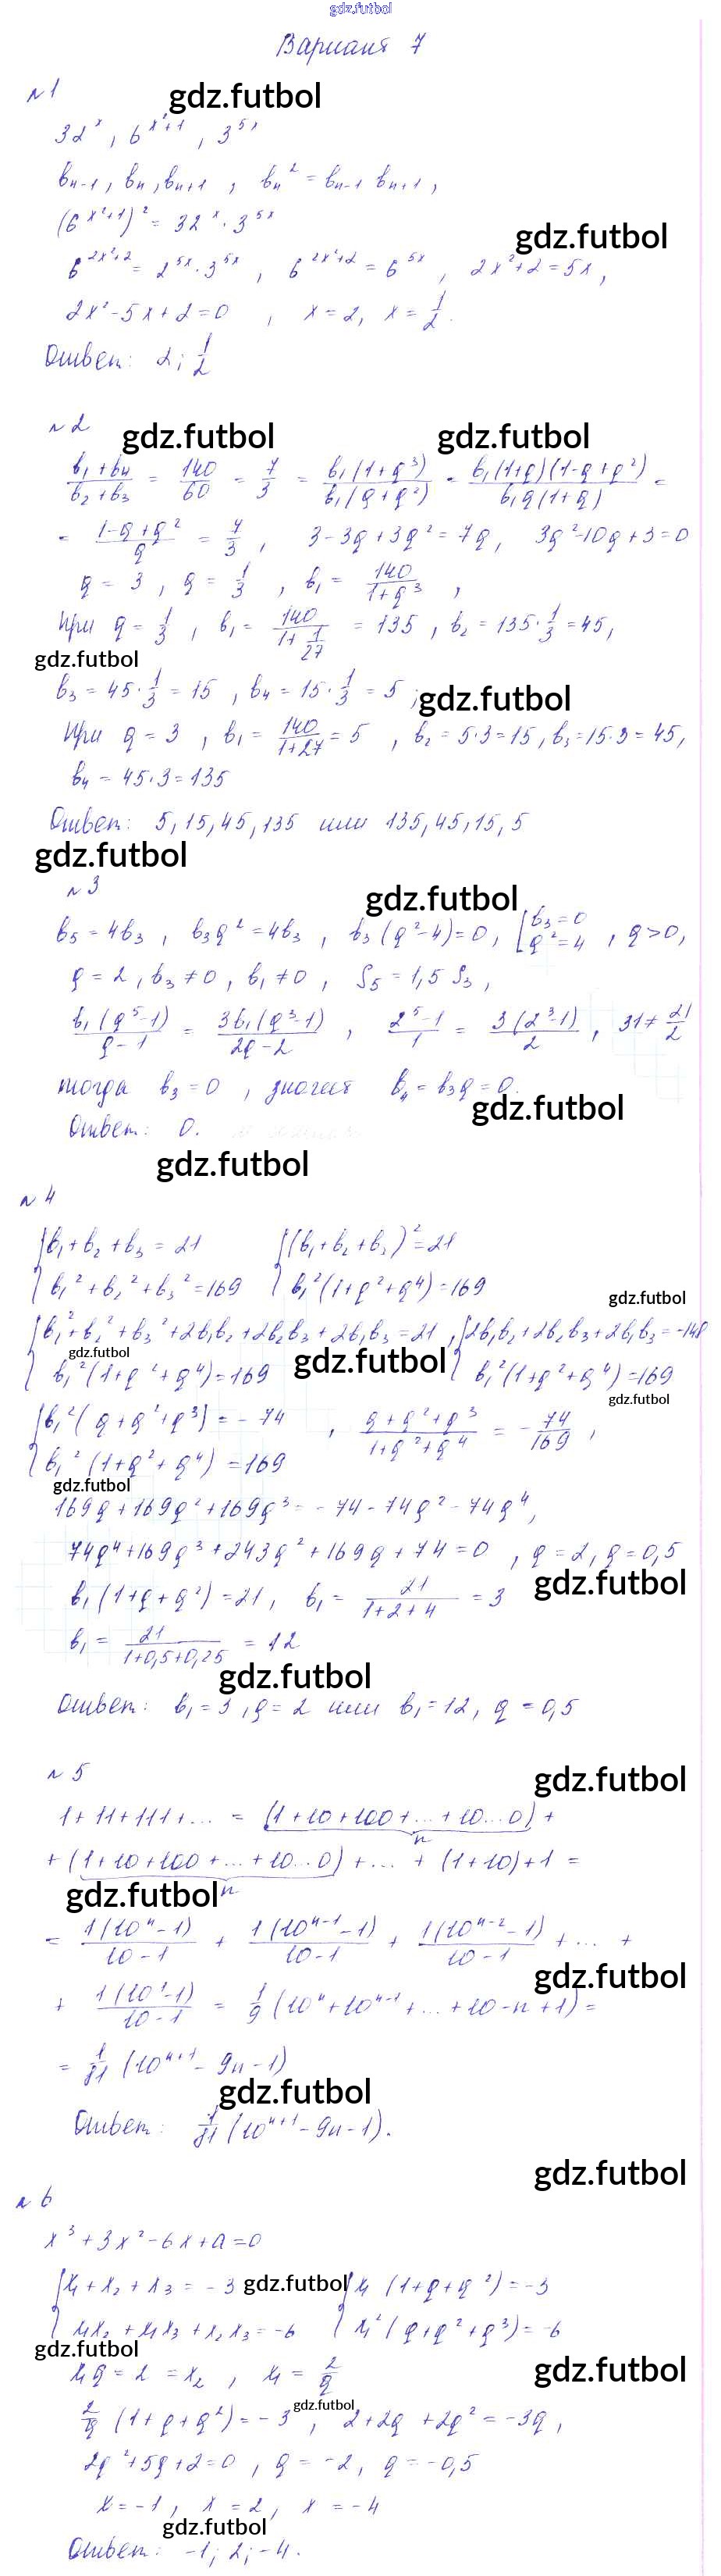 gdz.futbol
Вариант 7
№1
gdz.futbol
32^x, 6^{x²+1}, 3^{5x}
b_{n-1}, b_n, b_{n+1}, b_n² = b_{n-1} b_{n+1},
(6^{x²+1})² = 32^x · 3^{5x}
gdz.futbol
6^{2x²+2} = 2^{5x} · 3^{5x}, 6^{2x²+2} = 6^{5x}, 2x²+2 = 5x,
2x²-5x+2=0, x=2, x=1/2.
Ответ: 2; 1/2
№2
gdz.futbol gdz.futbol
(b₁+b₄)/(b₂+b₃) = 140/60 = 7/3 = b₁(1+q³)/b₁(q+q²) = b₁(1+q)(1-q+q²)/b₁q(1+q) =
= (1-q+q²)/q = 7/3, 3-3q+3q²=7q, 3q²-10q+3=0
q=3, q=1/3, b₁=140/(1+q³),
При q=1/3, b₁=140/(1+1/27)=135, b₂=135·1/3=45,
gdz.futbol
b₃=45·1/3=15, b₄=15·1/3=5;
gdz.futbol
При q=3, b₁=140/(1+27)=5, b₂=5·3=15, b₃=15·3=45,
b₄=45·3=135
Ответ: 5, 15, 45, 135 или 135, 45, 15, 5
gdz.futbol
№3
gdz.futbol
b₅=4b₃, b₃q²=4b₃, b₃(q²-4)=0, [b₃=0 q²=4, q>0,
q=2, b₃≠0, b₁≠0, S₅=1,5 S₃,
b₁(q⁵-1)/(q-1) = 3b₁(q³-1)/(2q-2), (2⁵-1)/1 = 3(2³-1)/2, 31≠21/2
тогда b₃=0, значит b₄=b₃q=0.
gdz.futbol
Ответ: 0.
gdz.futbol
№4
{b₁+b₂+b₃=21 {(b₁+b₂+b₃)²=21
b₁²+b₂²+b₃²=169 b₁²(1+q²+q⁴)=169
gdz.futbol
{b₁²+b₂²+b₃²+2b₁b₂+2b₂b₃+2b₁b₃=21, {2b₁b₂+2b₂b₃+2b₁b₃=-148
gdz.futbol gdz.futbol
b₁²(1+q²+q⁴)=169 b₁²(1+q²+q⁴)=169
gdz.futbol
{b₁²(q+q²+q³)=-74, (q+q²+q³)/(1+q²+q⁴) = -74/169,
b₁²(1+q²+q⁴)=169
gdz.futbol
169q+169q²+169q³=-74-74q²-74q⁴,
74q⁴+169q³+243q²+169q+74=0, q=2, q=0,5
gdz.futbol
b₁(1+q+q²)=21, b₁=21/(1+2+4)=3
b₁=21/(1+0,5+0,25)=12
gdz.futbol
Ответ: b₁=3, q=2 или b₁=12, q=0,5
№5
gdz.futbol
1+11+111+... = (1+10+100+...+10...0)+
n
+(1+10+100+...+10...0)+...+(1+10)+1=
gdz.futbol
n
= 1(10ⁿ-1)/(10-1) + 1(10^{n-1}-1)/(10-1) + 1(10^{n-2}-1)/(10-1) + ... +
gdz.futbol
+ 1(10¹-1)/(10-1) = 1/9(10ⁿ+10^{n-1}+...+10-n+1)=
= 1/81(10^{n+1}-9n-1)
gdz.futbol
Ответ: 1/81(10^{n+1}-9n-1).
gdz.futbol
№6
x³+3x²-6x+a=0
{x₁+x₂+x₃=-3 gdz.futbol {x₁(1+q+q²)=-3
x₁x₂+x₁x₃+x₂x₃=-6 x₁²(q+q²+q³)=-6
gdz.futbol
x₁q=2=x₂, x₁=2/q
gdz.futbol
gdz.futbol
2/q(1+q+q²)=-3, 2+2q+2q²=-3q,
2q²+5q+2=0, q=-2, q=-0,5
x=-1, x=2, x=-4
gdz.futbol
Ответ: -1; 2; -4.